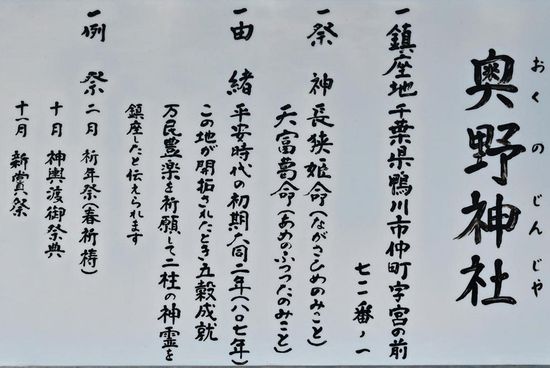 奥野神社
おくのじんじゃ
一鎮座地 千葉県鴨川市仲町字宮の前
七二番ノ一
一祭神 長狭姫命(ながさひめのみこと)
天富魯命(あめのふつつたのみこと)
一由緒 平安時代の初期大同二年(八〇七年)
この地が開拓されたとき五穀成就
万民豊楽を祈願して二柱の神霊を
鎮座したと伝えられます
一例祭 二月 祈年祭(春祈祷)
十月 神輿渡御祭典
十一月 新嘗祭